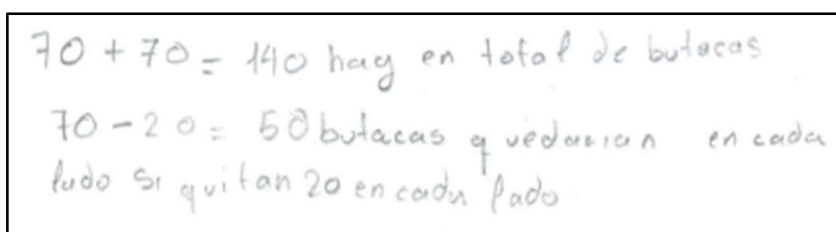 70 + 70 = 140 hay en total de butacas
70 - 20 = 50 butacas quedarian en cada
lado si quitan 20 en cada lado